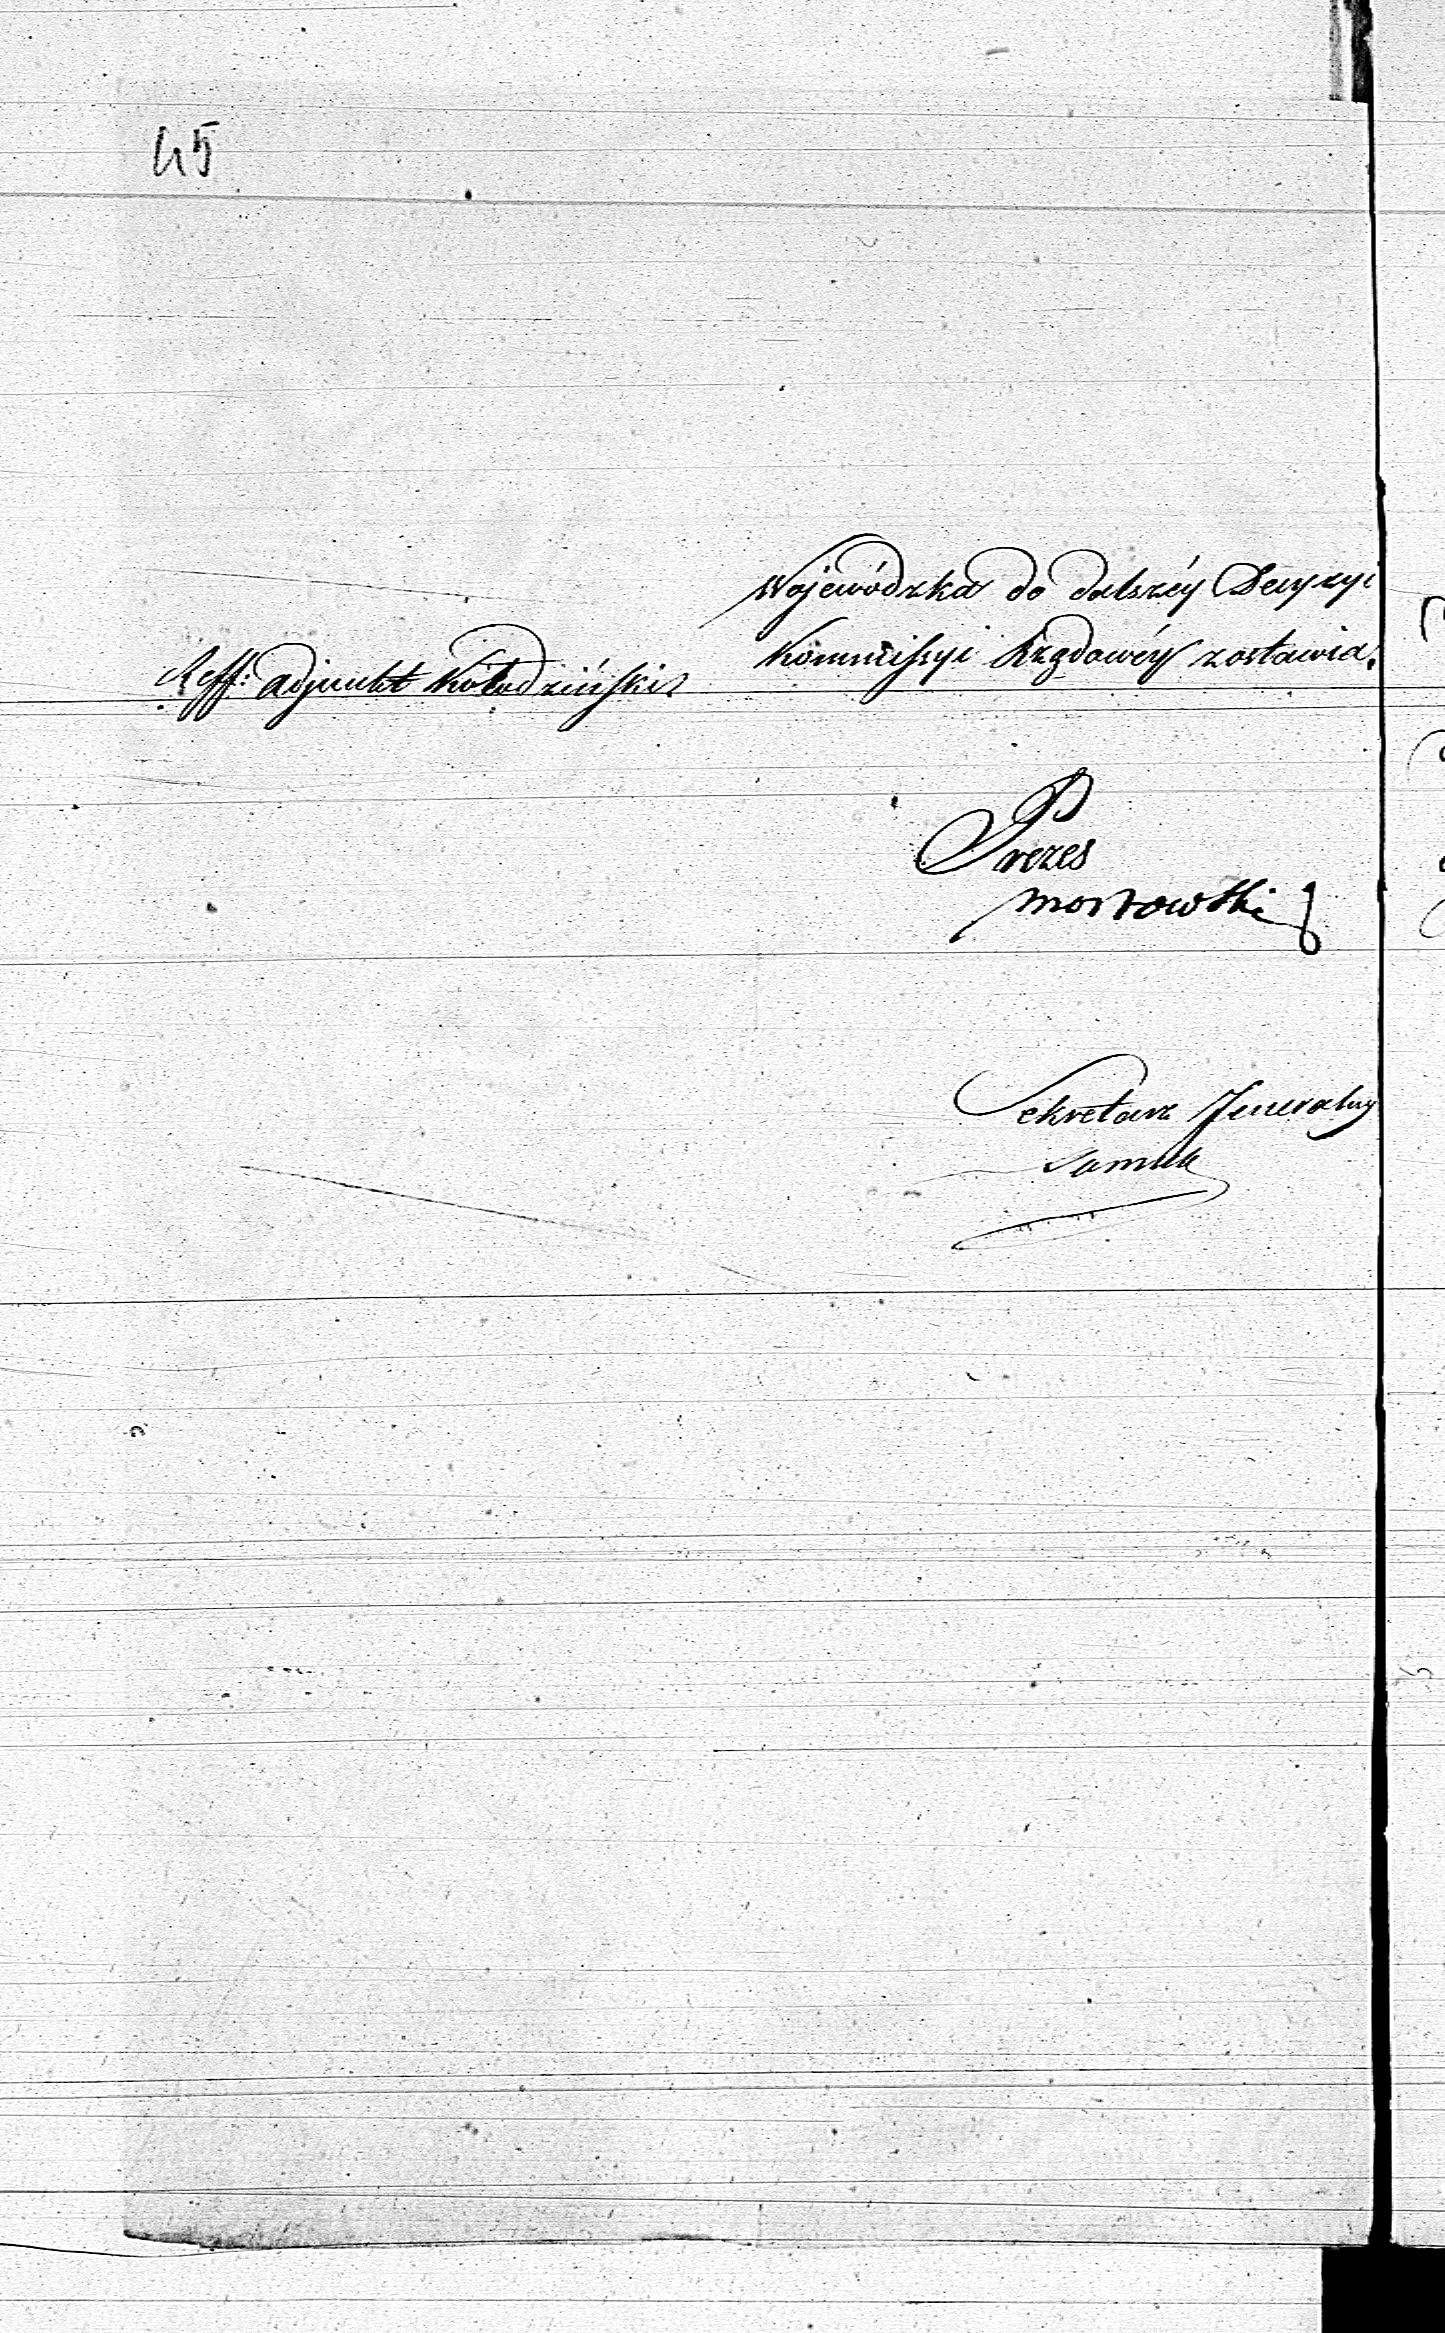 45
Wojewódzka do dalszéy Decyzyi
Kommissyi Rządowéy zostawia.
Reff: adjunkt Kołodziński
Prezes
Mostowski
Sekretarz Jeneralny